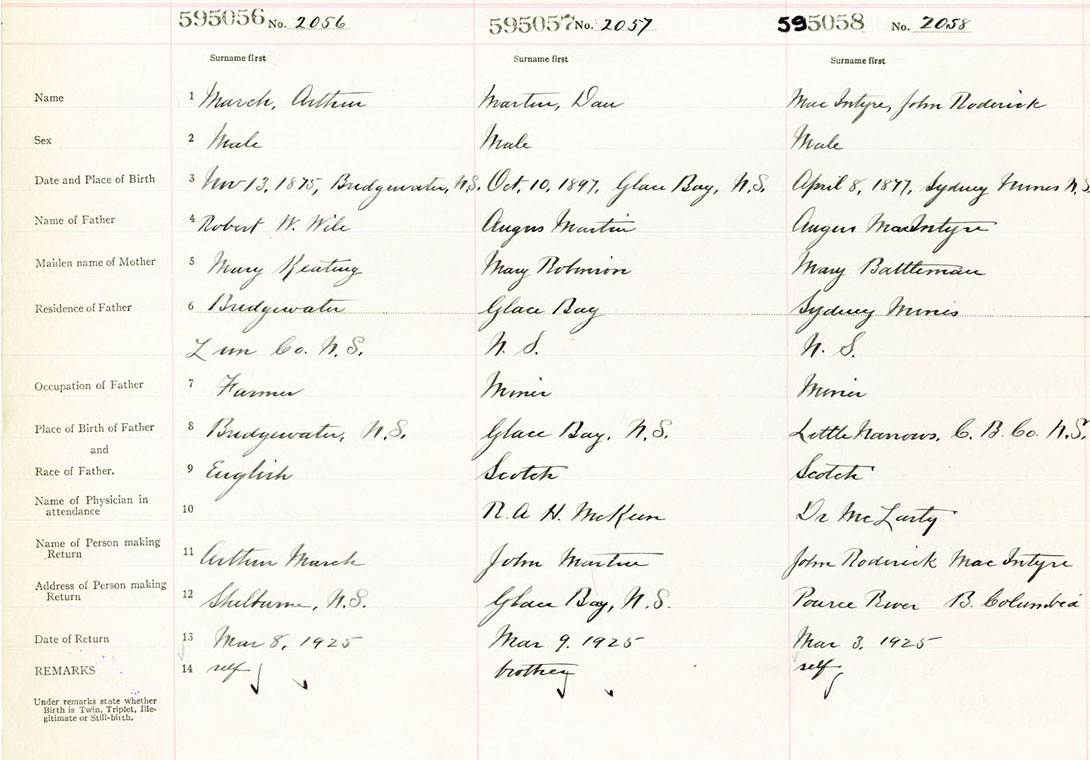 595056 No. 2056 595057 No. 2057 595058 No. 2058
Surname first Surname first Surname first
Name 1 March, Arthur Martin, Dan Mac Intyre, John Roderick
Sex 2 Male Male Male
Date and Place of Birth 3 Nov 13, 1875, Bridgewater, N.S. Oct, 10, 1897, Glace Bay, N.S. April 8, 1877, Sydney Mines N.S.
Name of Father 4 Robert W. Wile Angus Martin Angus MacIntyre
Maiden name of Mother 5 Mary Keating Mary Robinson Mary Battleman
Residence of Father 6 Bridgewater Glace Bay Sydney Mines
Lun Co. N.S. N. S. N. S.
Occupation of Father 7 Farmer Miner Miner
Place of Birth of Father 8 Bridgewater, N.S. Glace Bay, N.S. Little Narrows, C. B. Co. N.S.
and
Race of Father. 9 English Scotch Scotch
Name of Physician in
attendance 10 R. A H. McKeen Dr McLarty
Name of Person making
Return 11 Arthur March John Martin John Roderick Mac Intyre
Address of Person making
Return 12 Shelburne, N.S. Glace Bay, N.S. Pource River B. Columbia
Date of Return 13 Mar 8, 1925 Mar 9, 1925 Mar 3, 1925
REMARKS 14 self brother self
Under remarks state whether
Birth is Twin, Triplet, Ille-
gitimate or Still-birth.